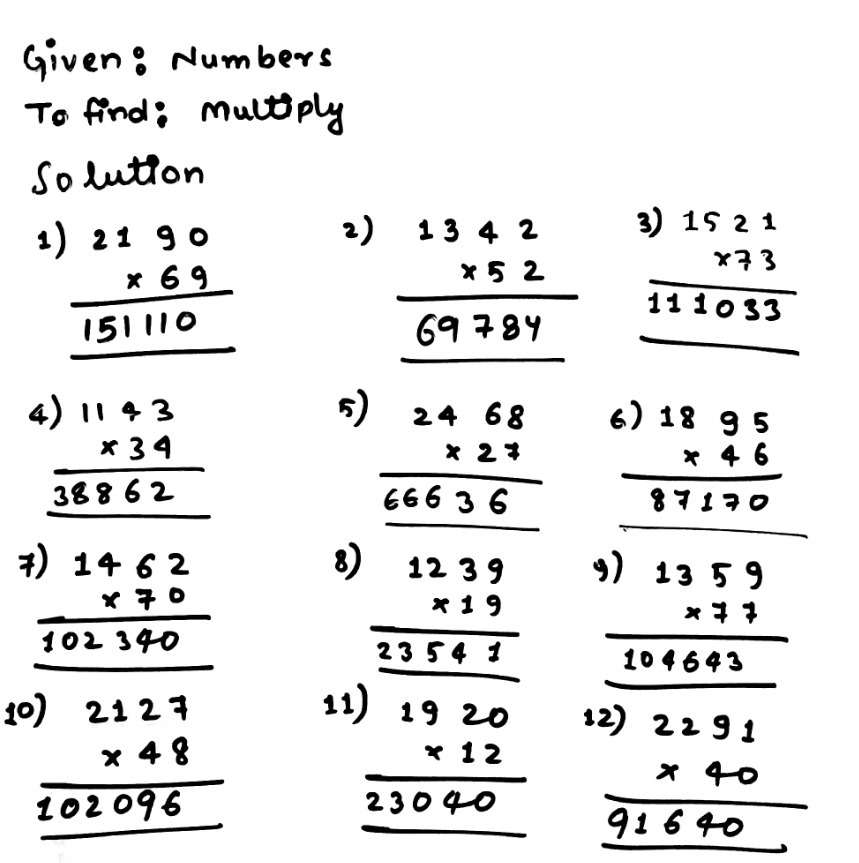 Given: Numbers
To find: Multiply
Solution
1) 2190 2) 1342 3) 1521
×69 ×52 ×73
151110 69784 111033
4) 1143 5) 2468 6) 1895
×34 ×27 ×46
38862 66636 87170
7) 1462 8) 1239 9) 1359
×70 ×19 ×77
102340 23541 104643
10) 2127 11) 1920 12) 2291
×48 ×12 ×40
102096 23040 91640